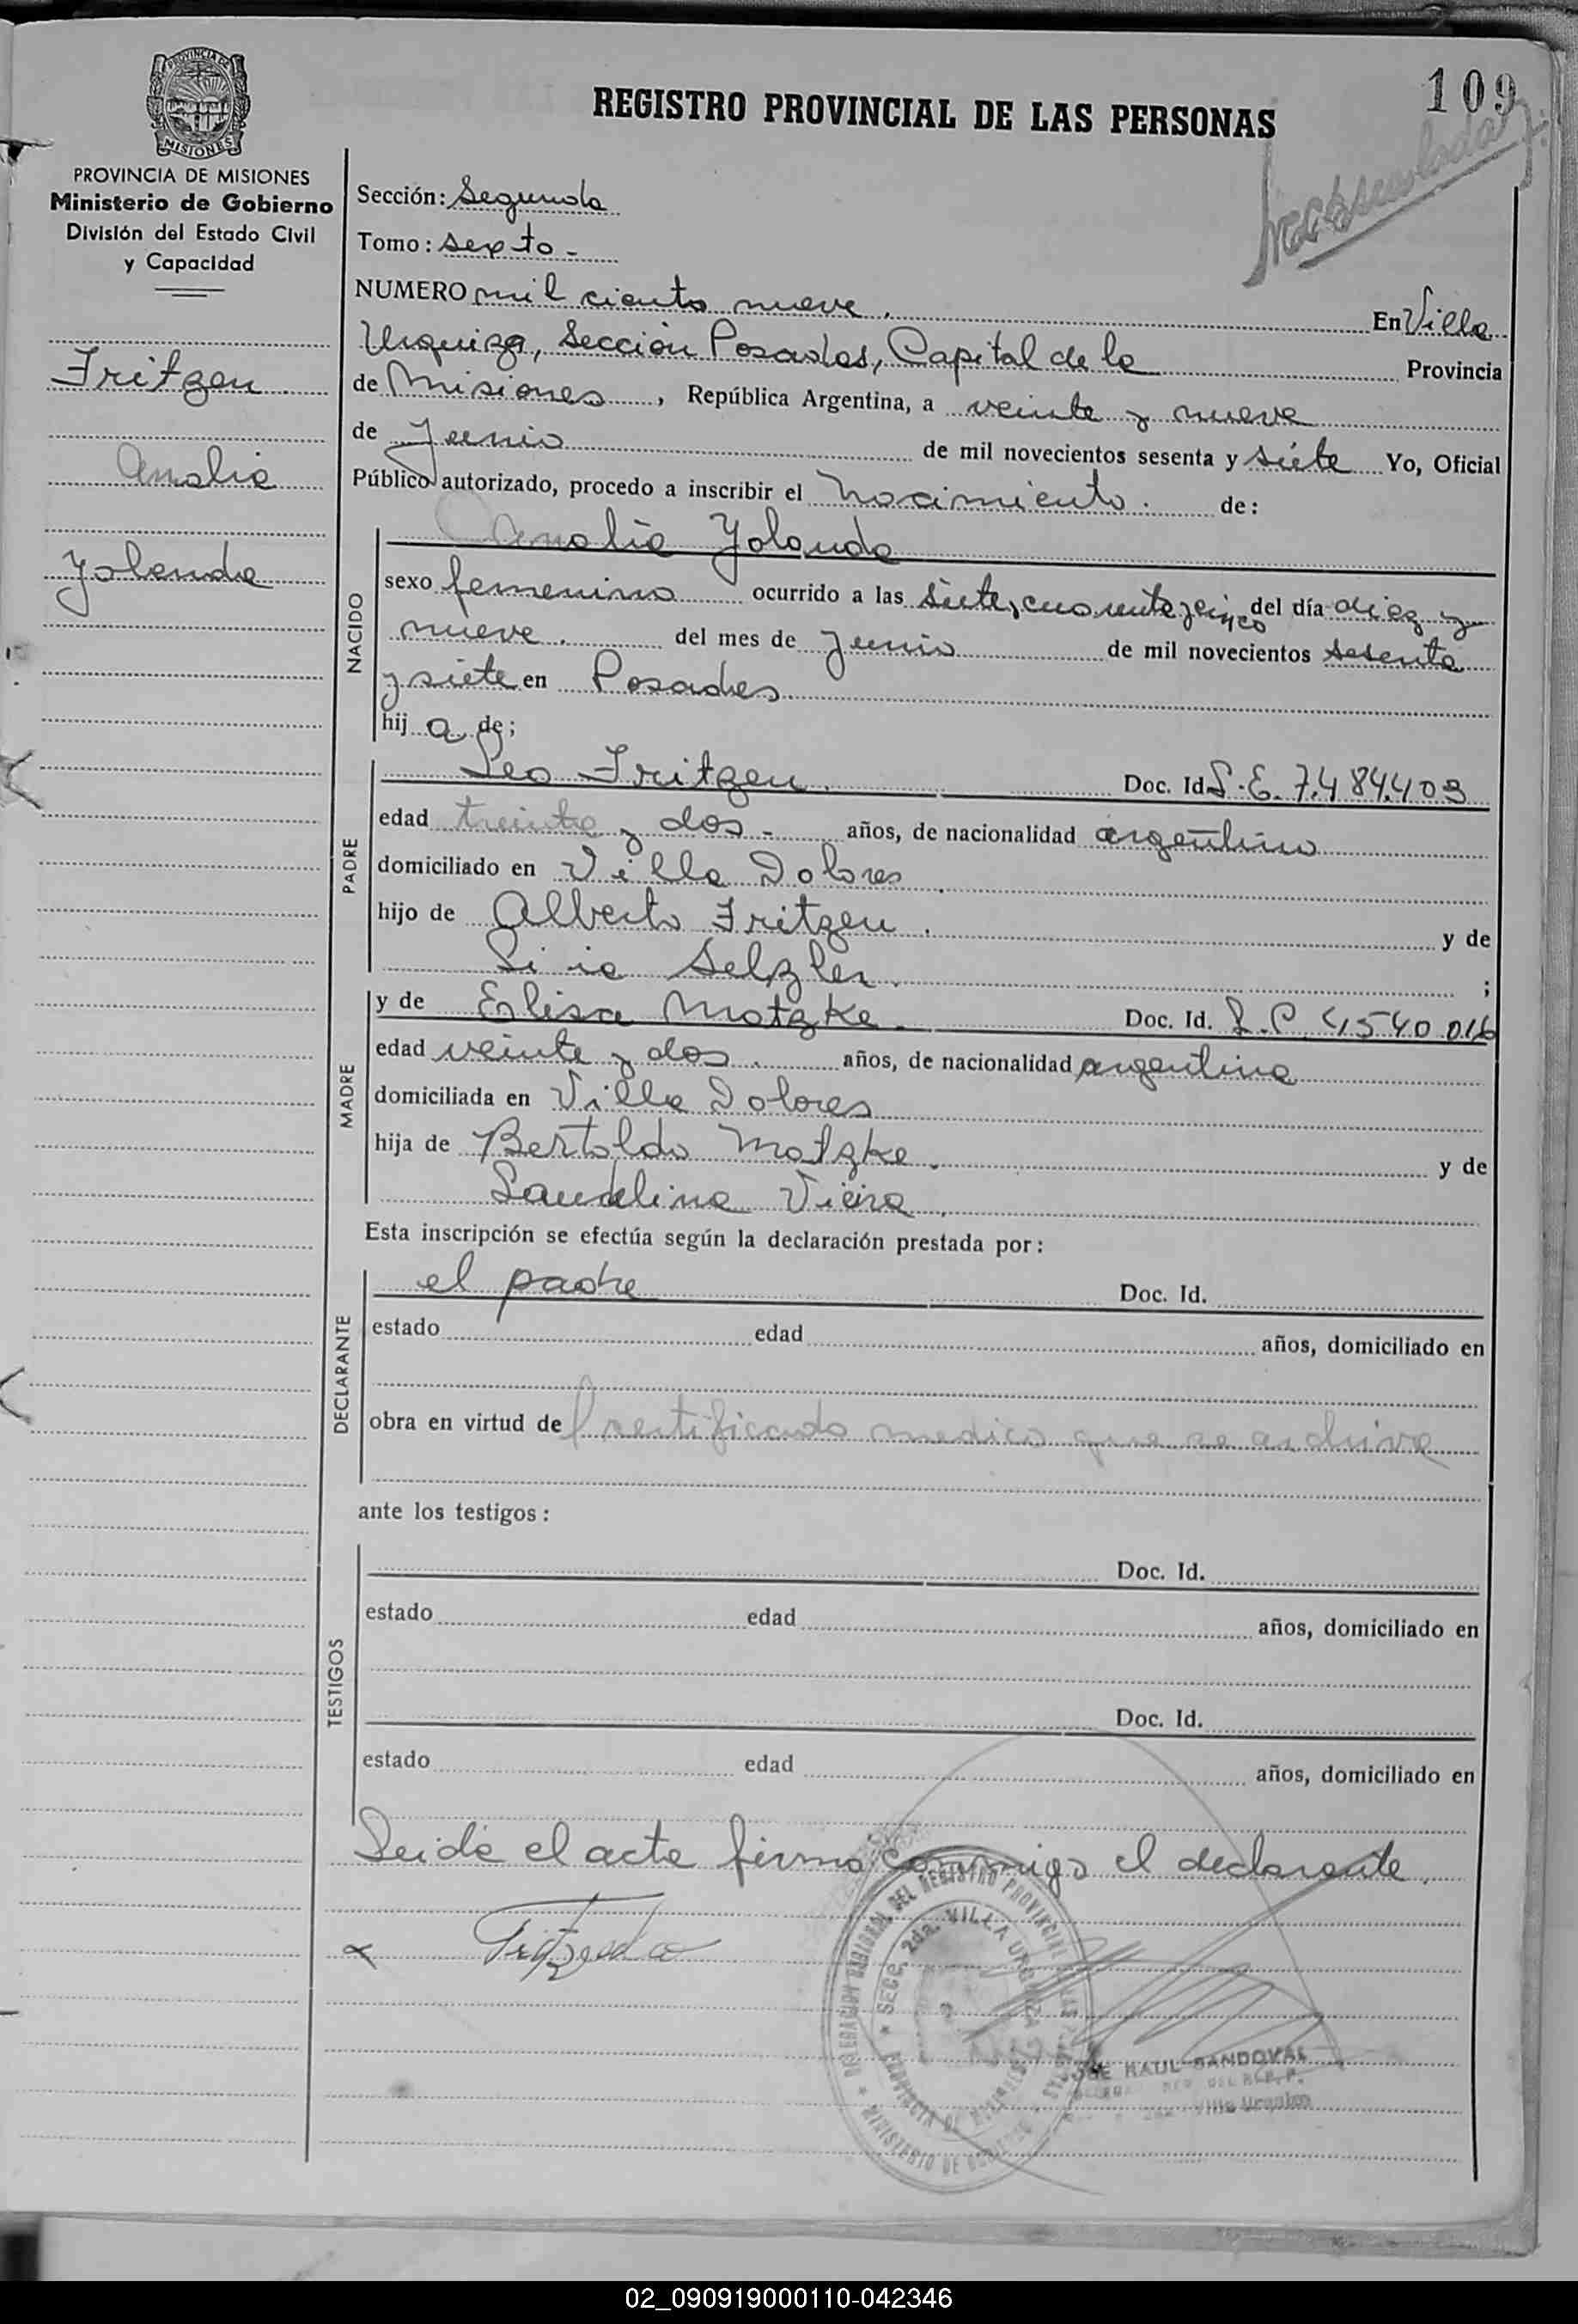 109
REGISTRO PROVINCIAL DE LAS PERSONAS
PROVINCIA DE
MISIONES
PROVINCIA DE MISIONES
Ministerio de Gobierno
División del Estado Civil
y Capacidad
Fritzen
Amalia
Yolanda
Sección: Segunda
Tomo: sexto -
NUMERO mil ciento nueve. En Villa
Urquiza, Sección Posadas, Capital de la Provincia
de Misiones, República Argentina, a veinte y nueve
de Junio de mil novecientos sesenta y siete Yo, Oficial
Público autorizado, procedo a inscribir el nacimiento. de:
NACIDO
Amalia Yolanda
sexo femenino ocurrido a las siete, cuarenta y cinco del día diez y
nueve. del mes de Junio de mil novecientos sesenta
y siete en Posadas
hij a de;
PADRE
Leo Fritzen. Doc. Id L.E. 7.484.409
edad treinta y dos - años, de nacionalidad argentino
domiciliado en Villa Dolores
hijo de Alberto Fritzen. y de
Selzler. ;
MADRE
y de Elisa Motzke. Doc. Id. L.C. 4,540.016
edad veinte y dos. años, de nacionalidad argentina
domiciliada en Villa Dolores
hija de Bertoldo Motzke. y de
Laudelina Vieira.
Esta inscripción se efectúa según la declaración prestada por:
DECLARANTE
el padre Doc. Id.
estado edad años, domiciliado en
obra en virtud de Certificado medico que se archiva
ante los testigos:
TESTIGOS
Doc. Id.
estado edad años, domiciliado en
Doc. Id.
estado edad años, domiciliado en
Leida el acta firma conmigo el declarante.
DELEGACION REGIONAL DEL REGISTRO PROVINCIAL DE LAS PERSONAS
SECC. 2da. VILLA URQUIZA
PROVINCIA DE MISIONES
MINISTERIO DE GOBIERNO
RAUL SANDOVAL
Villa Urquiza
02_090919000110-042346